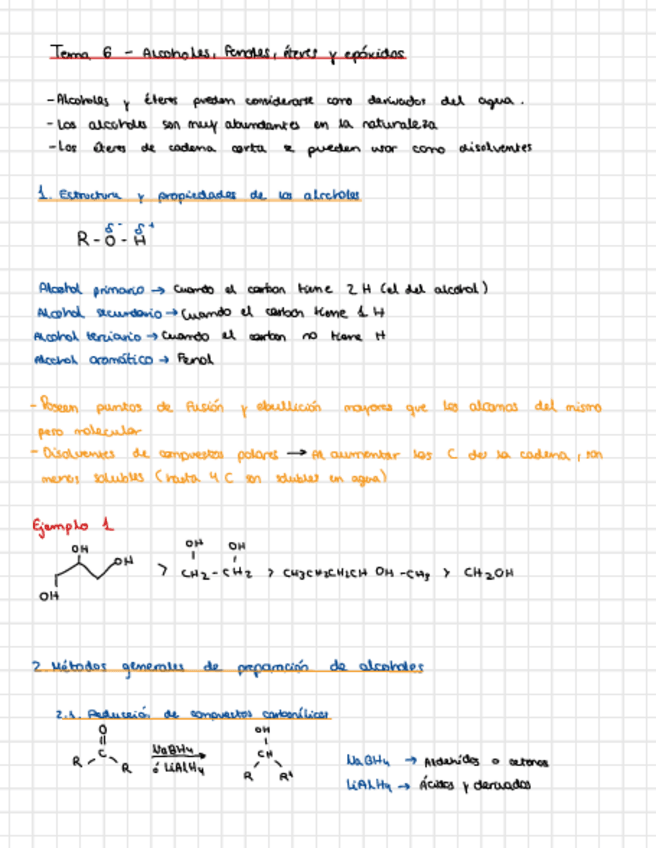 Tema 6 - Alcoholes, fenoles, éteres y epóxidos
- Alcoholes y éteres pueden considerarse como derivados del agua.
- Los alcoholes son muy abundantes en la naturaleza
- Los éteres de cadena corta se pueden usar como disolventes
1. Estructura y propiedades de los alcoholes
δ- δ+
R-O-H
Alcohol primario → Cuando el carbon tiene 2 H (el del alcohol)
Alcohol secundario → Cuando el carbon tiene 1 H
Alcohol terciario → Cuando el carbon no tiene H
Alcohol aromático → Fenol
- Poseen puntos de fusión y ebullición mayores que los alcanos del mismo
peso molecular
- Disolventes de compuestos polares → Al aumentar los C de la cadena, son
menos solubles (hasta 4 C son solubles en agua)
Ejemplo 1
OH OH OH OH
OH > CH2-CH2 > CH3CH2CH2CH OH-CH3 > CH2OH
2. Métodos generales de preparación de alcoholes
2.1. Reducción de compuestos carbonílicos
O OH
R C R NaBH4 CH NaBH4 → Aldehidos o cetonas
ó LiAlH4 R R' LiAlH4 → Ácidos y derivados